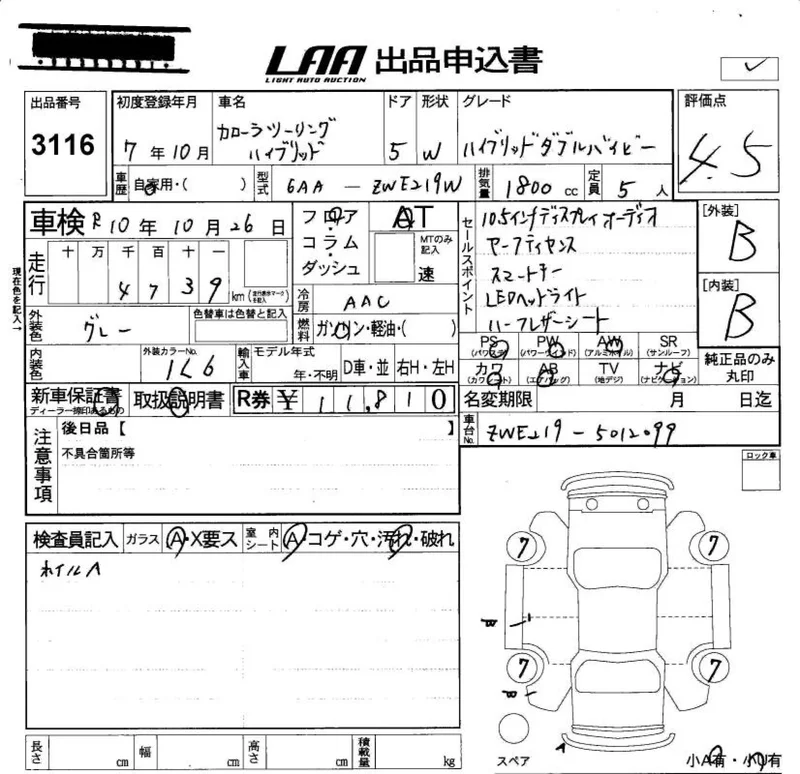 LAA 出品申込書
LIGHT AUTO AUCTION
出品番号 3116
初度登録年月 7年10月
車名 カローラツーリング ハイブリッド
ドア 5
形状 W
グレード ハイブリッドダブルバイビー
評価点 4.5
車歴 自家用・( )
型式 6AA - ZWE219W
排気量 1800 cc
定員 5人
車検 R10年10月26日
フロア・コラム・ダッシュ
AT
MTのみ記入
速
セールスポイント
10.5インチディスプレイオーディオ
セーフティセンス
スマートキー
LEDヘッドライト
ハーフレザーシート
[外装] B
[内装] B
現在色を記入
走行 十 万 千 百 十 一
4 7 3 9 km (走行表示マークを記入)
冷房 AAC
燃料 ガソリン・軽油・( )
外装色 グレー
色替車は色替と記入
内装色
外装カラーNo. 1L6
輸入車 モデル年式 年・不明
D車・並
右H・左H
PS (パワステ) PW (パワーウインド) AW (アルミホイル) SR (サンルーフ)
カワ (カワシート) AB (エアバッグ) TV (地デジ) ナビ (ナビゲーション)
純正品のみ丸印
新車保証書
ディーラー捺印あるもの
取扱説明書
R券 ¥11,810
名変期限 月 日迄
車台No. ZWE219-5012099
注意事項
後日品【 】
不具合箇所等
ロック車
検査員記入
ガラス A・X要ス
室内シート A・コゲ・穴・汚れ・破れ
ホイルA
7 7
W
7 7
W
1
スペア
小A有・小U有
長さ cm 幅 cm 高さ cm 積載量 kg